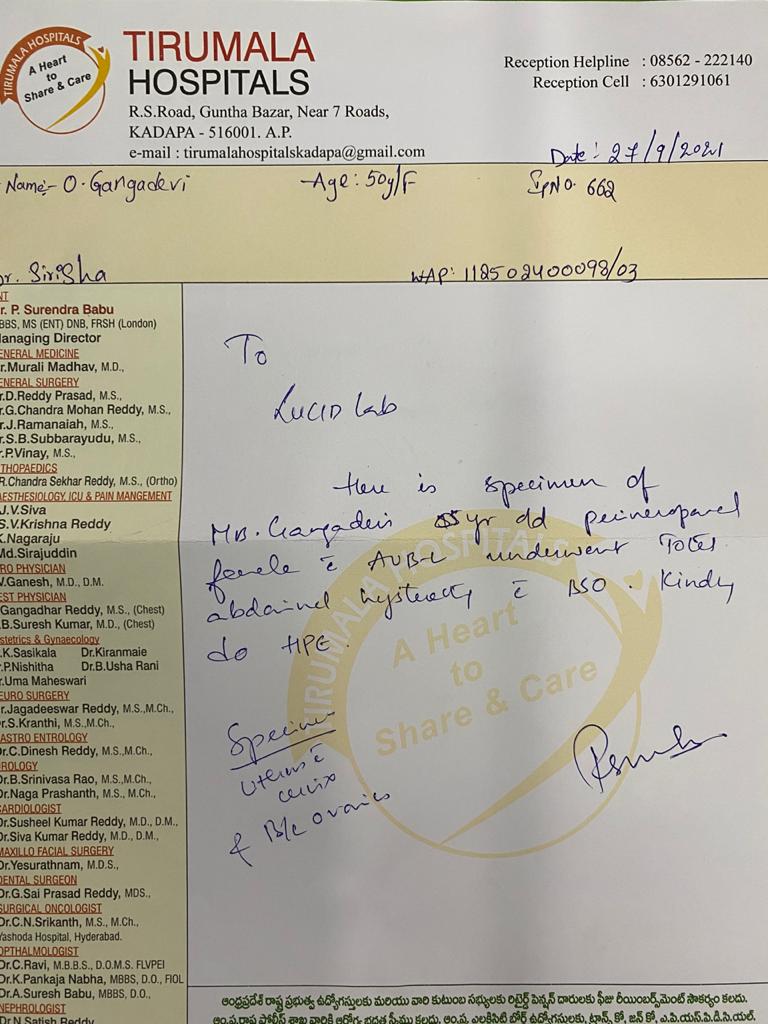 TIRUMALA HOSPITALS
A Heart
to
Share & Care
TIRUMALA
HOSPITALS
R.S.Road, Guntha Bazar, Near 7 Roads,
KADAPA - 516001. A.P.
e-mail : tirumalahospitalskadapa@gmail.com
Reception Helpline : 08562 - 222140
Reception Cell : 6301291061
Date: 27/9/2021
Name:- O. Gangadevi Age: 50y/F No. 662
Dr. Sirisha
WAP: 112502400098/03
NT
r. P. Surendra Babu
BBS, MS (ENT) DNB, FRSH (London)
anaging Director
ENERAL MEDICINE
r.Murali Madhav, M.D.,
ENERAL SURGERY
r.D.Reddy Prasad, M.S.,
r.G.Chandra Mohan Reddy, M.S.,
r.J.Ramanaiah, M.S.,
r.S.B.Subbarayudu, M.S.,
r.P.Vinay, M.S.,
THOPAEDICS
R.Chandra Sekhar Reddy, M.S., (Ortho)
AESTHESIOLOGY, ICU & PAIN MANGEMENT
J.V.Siva
S.V.Krishna Reddy
K.Nagaraju
Md.Sirajuddin
RO PHYSICIAN
V.Ganesh, M.D., D.M.
EST PHYSICIAN
Gangadhar Reddy, M.S., (Chest)
B.Suresh Kumar, M.D., (Chest)
stetrics & Gynaecology
.K.Sasikala Dr.Kiranmaie
r.P.Nishitha Dr.B.Usha Rani
r.Uma Maheswari
EURO SURGERY
r.Jagadeeswar Reddy, M.S.,M.Ch.,
r.S.Kranthi, M.S.,M.Ch.,
ASTRO ENTROLOGY
Dr.C.Dinesh Reddy, M.S.,M.Ch.,
ROLOGY
Dr.B.Srinivasa Rao, M.S.,M.Ch.,
Dr.Naga Prashanth, M.S., M.Ch.,
CARDIOLOGIST
Dr.Susheel Kumar Reddy, M.D., D.M.,
Dr.Siva Kumar Reddy, M.D., D.M.,
MAXILLO FACIAL SURGERY
Dr.Yesurathnam, M.D.S.,
DENTAL SURGEON
Dr.G.Sai Prasad Reddy, MDS.,
SURGICAL ONCOLOGIST
Dr.C.N.Srikanth, M.S., M.Ch.,
Yashoda Hospital, Hyderabad.
OPTHALMOLOGIST
Dr.C.Ravi, M.B.B.S., D.O.M.S. FLVPEI
Dr.K.Pankaja Nabha, MBBS, D.O., FIOL
Dr.A.Suresh Babu, MBBS, D.O.,
NEPHROLOGIST
Dr.N.Satish Reddy
To
LUCID Lab
Here is specimen of
Gangadevi yr old
female c̄ AUB-L underwent Total
c̄ BSO. Kindly
do HPE.
Specimen
Uterus c̄
cervix
& B/L ovaries
TIRUMALA HOSPITALS
A Heart
to
Share & Care
ఆంధ్రప్రదేశ్ రాష్ట్ర ప్రభుత్వ ఉద్యోగస్తులకు మరియు వారి కుటుంబ సభ్యులకు రిటైర్డ్ పెన్షన్ దారులకు ఫీజు రీయింబర్స్‌మెంట్ సౌకర్యం కలదు.